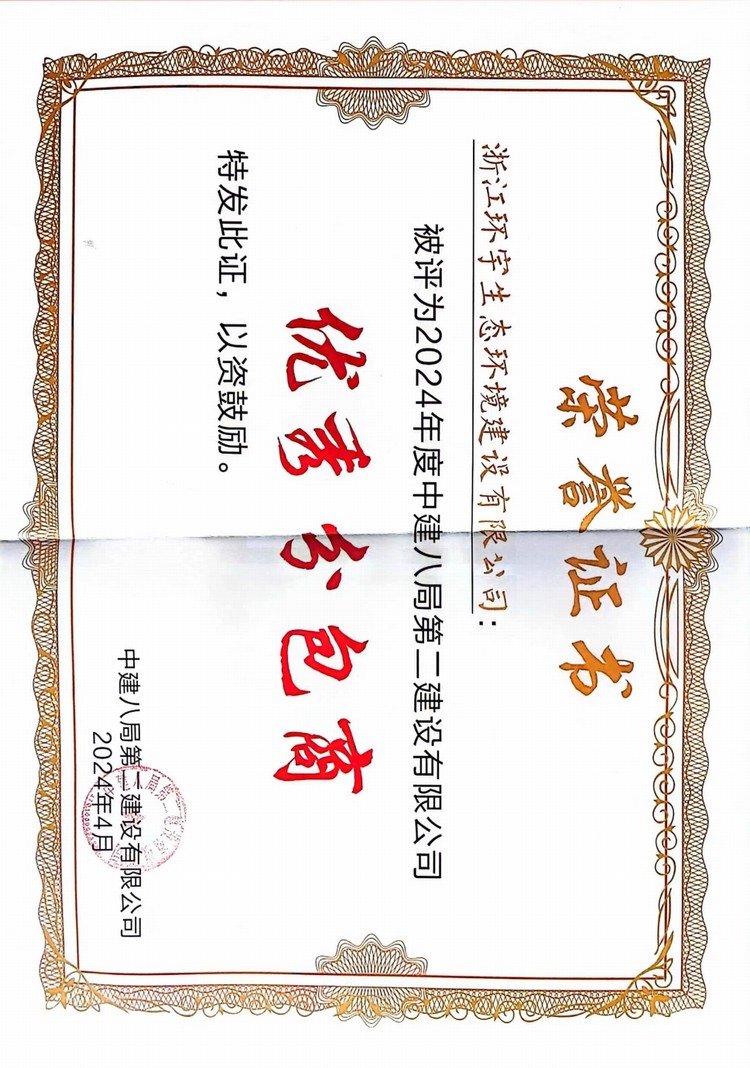 荣誉证书
浙江环宇生态环境建设有限公司：
被评为2024年度中建八局第二建设有限公司
优秀分包商
特发此证，以资鼓励。
中建八局第二建设有限公司
2024年4月